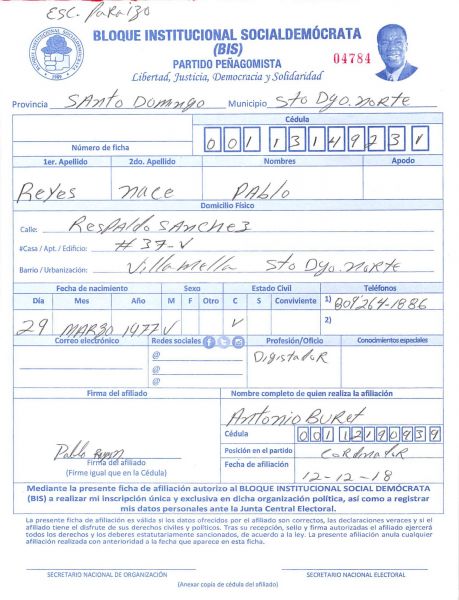 ESC. PARAÍZO
BLOQUE INSTITUCIONAL SOCIALDEMÓCRATA
(BIS)
PARTIDO PEÑAGOMISTA
04784
Libertad, Justicia, Democracia y Solidaridad
Provincia SANTO DOMINGO Municipio STO DGO. NORTE
Cédula
Número de ficha 001 1314923 1
1er. Apellido 2do. Apellido Nombres Apodo
Reyes nace PAblo
Domicilio Físico
Calle: RESPALDO SANCHEZ
#Casa / Apt. / Edificio: # 37-V
Barrio / Urbanización: Villa Mella STO DGO. NORTE
Fecha de nacimiento Sexo Estado Civil Teléfonos
Día Mes Año M F Otro C S Conviviente 1) 809264-1886
2)
29 MARZO 1977 V V
Correo electrónico Redes sociales Profesión/Oficio Conocimientos especiales
@ Digitador
@
@
Firma del afiliado Nombre completo de quien realiza la afiliación
Antonio Buret
Cédula 001 12190939
Pablo Reyes Posición en el partido Cordinador
Firma del afiliado
(Firme igual que en la Cédula) Fecha de afiliación 12-12-18
Mediante la presente ficha de afiliación autorizo al BLOQUE INSTITUCIONAL SOCIAL DEMÓCRATA
(BIS) a realizar mi inscripción única y exclusiva en dicha organización política, así como a registrar
mis datos personales ante la Junta Central Electoral.
La presente ficha de afiliación es válida si los datos ofrecidos por el afiliado son correctos, las declaraciones veraces y si el
afiliado tiene el disfrute de sus derechos civiles y políticos. Tras su recepción, sello y firma autorizadas el afiliado ejercerá
todos los derechos y los deberes estatutariamente sancionados, de acuerdo a la ley. La presente afiliación anula cualquier
afiliación realizada con anterioridad a la fecha que aparece en esta ficha.
SECRETARIO NACIONAL DE ORGANIZACIÓN SECRETARIO NACIONAL ELECTORAL
(Anexar copia de cédula del afiliado)